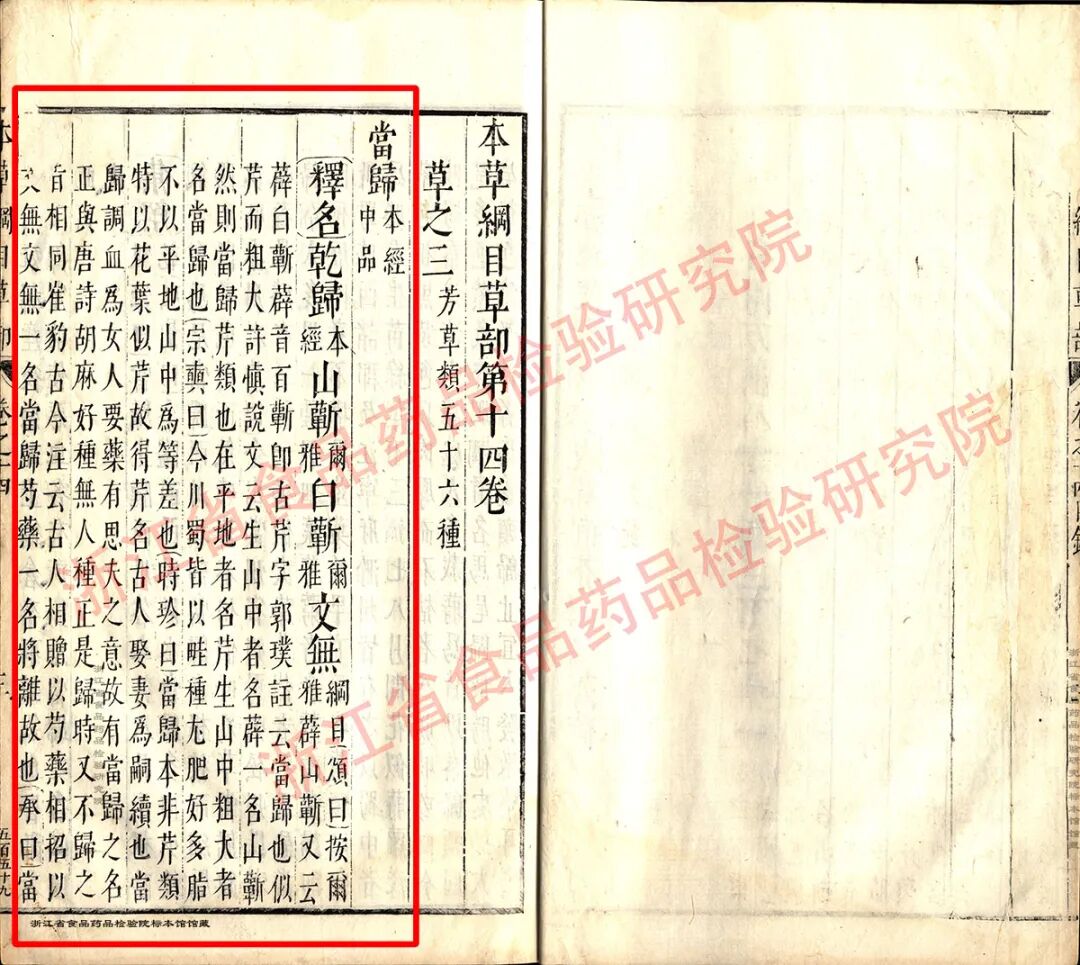 本草綱目草部第十四卷
草之三 芳草類五十六種
當歸 本經中品
釋名 乾歸 本經 山蘄 爾雅 白蘄 爾雅 文無 綱目 頌曰 按爾
雅薜山蘄又云
薜白蘄薜音百蘄卽古芹字郭璞註云當歸也似
芹而粗大許慎說文云生山中者名薜一名山蘄
然則當歸芹類也在平地者名芹生山中粗大者
名當歸也 宗奭曰 今川蜀皆以畦種尤肥好多脂
不以平地山中爲等差也 時珍曰 當歸本非芹類
特以花葉似芹故得芹名古人娶妻爲嗣續也當
歸調血爲女人要藥有思夫之意故有當歸之名
正與唐詩胡麻好種無人種正是歸時又不歸之
旨相同崔豹古今注云古人相贈以芍藥相招以
文無文無一名當歸芍藥一名將離故也 承曰 當
本草綱目草部
卷之十四
五百五十九
浙江省食品药品检验院标本馆馆藏
浙江省食品药品检验研究院
浙江省食品药品检验研究院